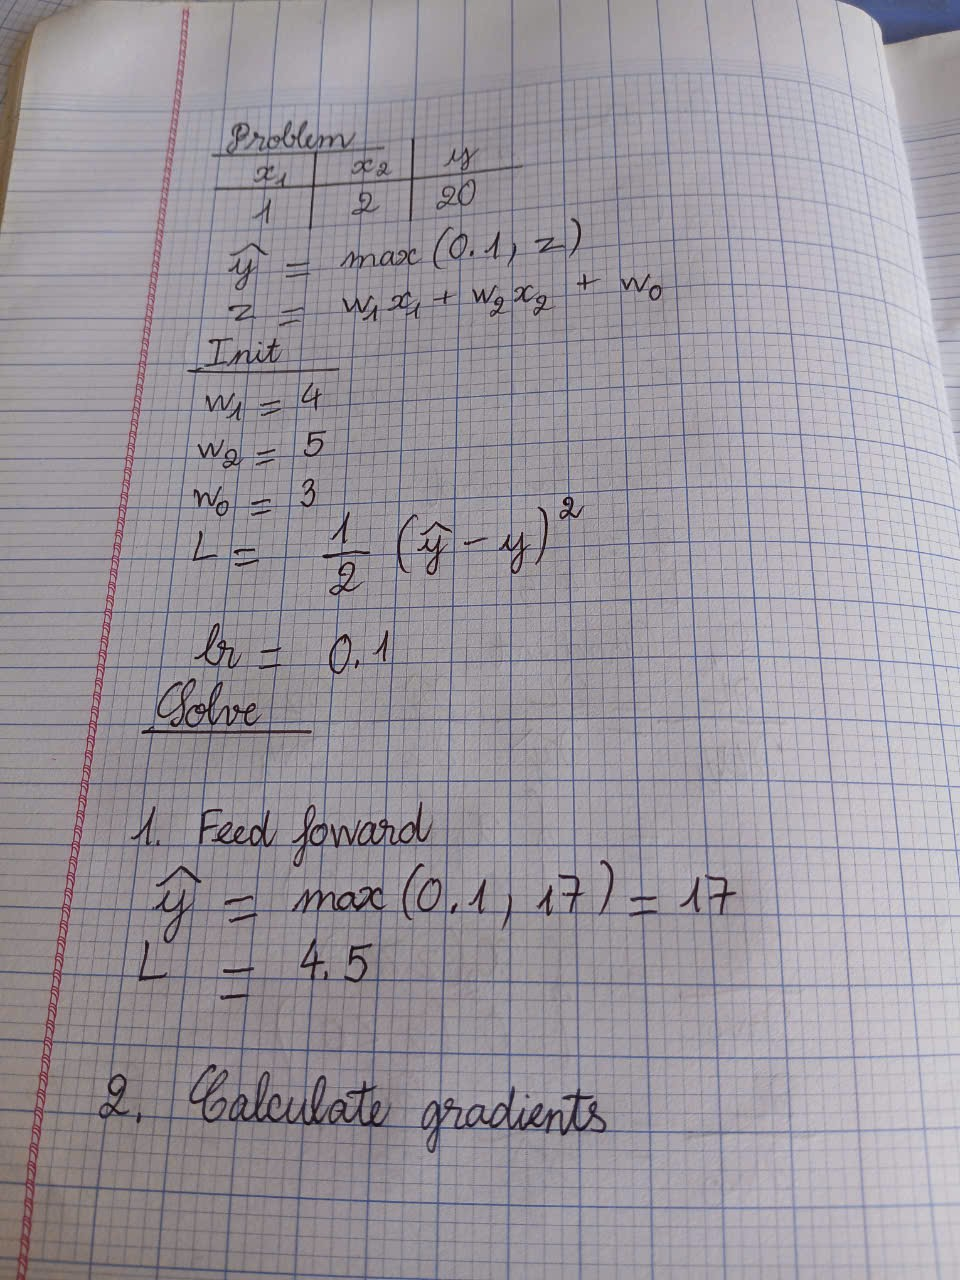 Problem
x₁ x₂ y
1 2 20
ŷ = max(0.1, z)
z = w₁x₁ + w₂x₂ + w₀
Init
w₁ = 4
w₂ = 5
w₀ = 3
L = 1/2 (ŷ - y)²
lr = 0.1
Solve
1. Feed foward
ŷ = max(0.1, 17) = 17
L = 4.5
2. Calculate gradients